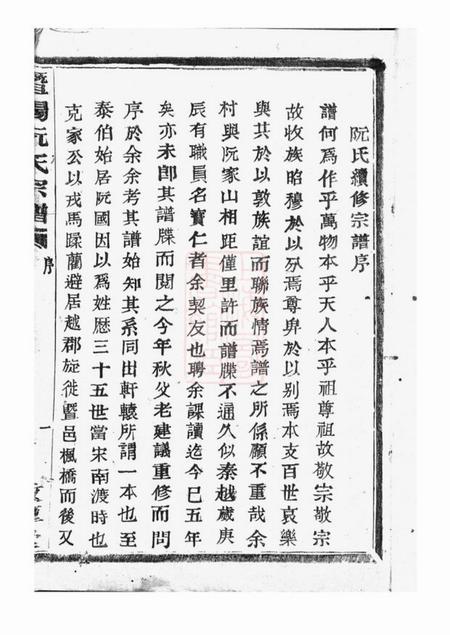 阮氏續修宗譜序
譜何爲作乎萬物本乎天人本乎祖尊祖故敬宗敬宗
故收族昭穆於以分焉尊卑於以别焉本支百世哀樂
與共於以敦族誼而聯族情焉譜之所係顧不重哉余
村與阮家山相距僅里許而譜牒不通久似秦越歲庚
辰有職員名寶仁者余契友也聘余課讀迄今已五年
矣亦未卽其譜牒而閱之今年秋父老建議重修而問
序於余余考其譜始知其系同出軒轅所謂一本也至
泰伯始居阮國因以爲姓歷三十五世當宋南渡時也
克家公以戎馬蹂藺避居越郡旋徙暨邑楓橋而後又
暨陽阮氏宗譜
序
一